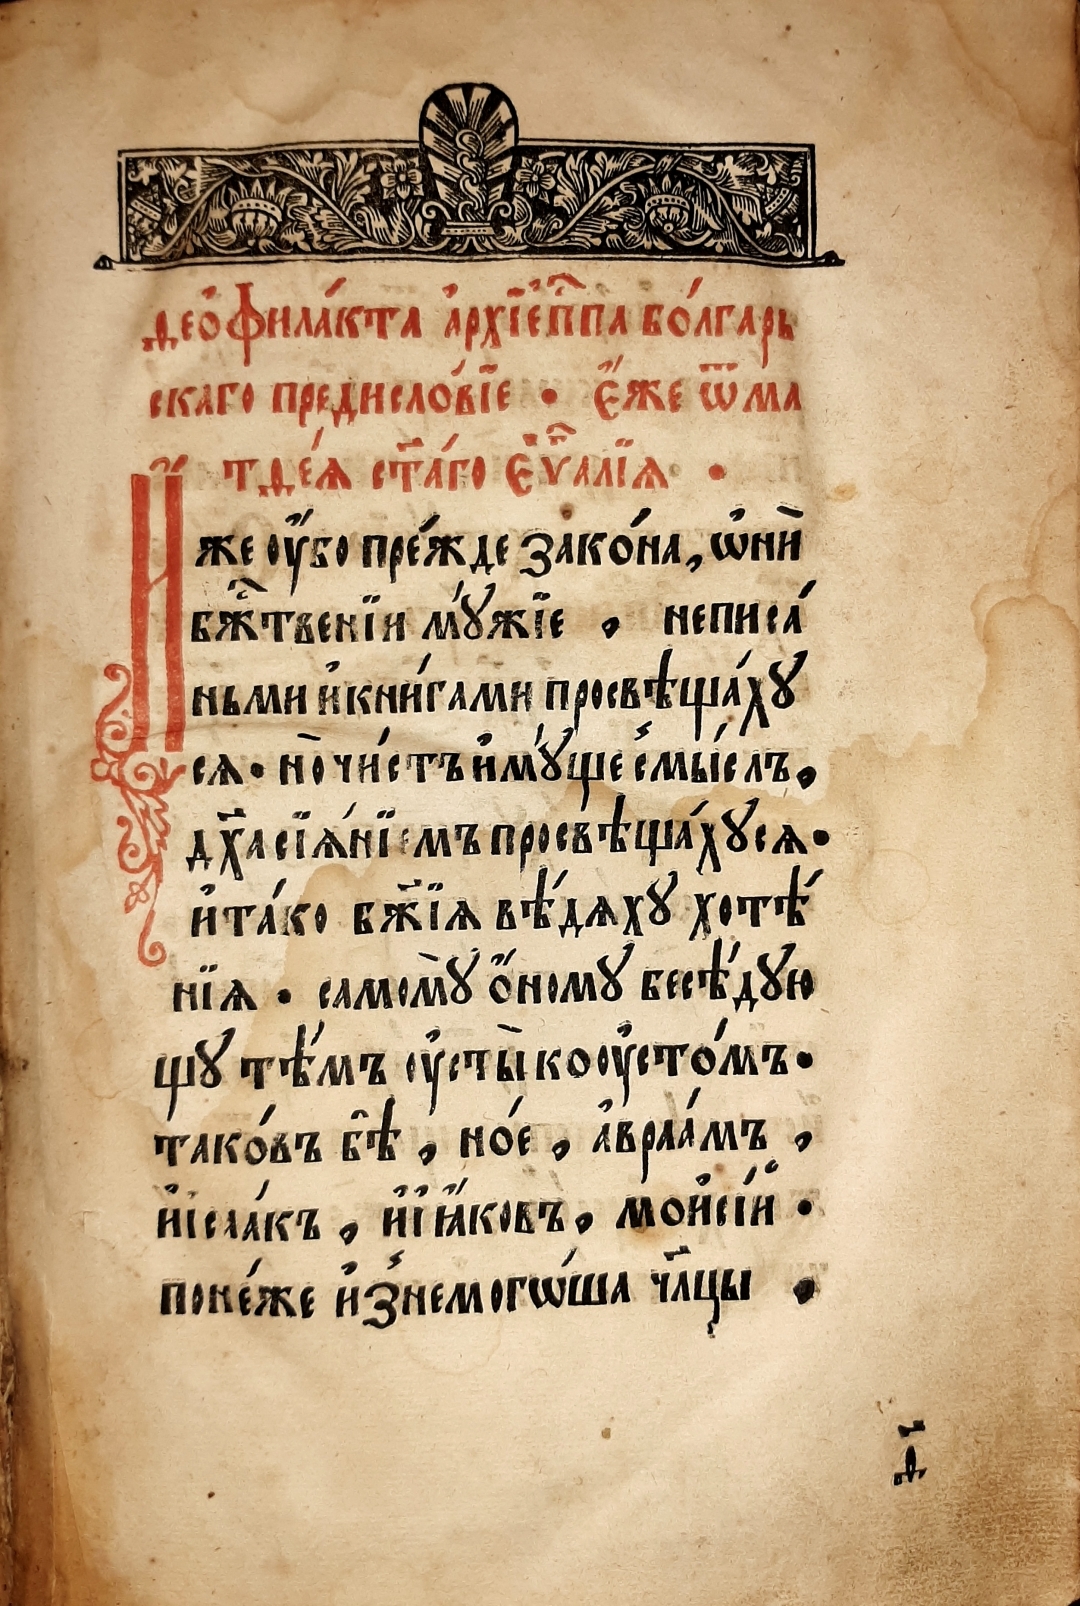 Ѳео́фила́кта а҆рхїе҆пⷭ҇па бо́лгарь
скаго предисло́вїе • є҆́же ѿ ма
тѳе́ѧ ст҃а́го є҆ѵⷢ҇алїѧ •
И҆́же ᲂу҆́бо пре́жде зако́на, ѡ҆ни̑
бж҃ⷭ҇твенїи мꙋ́жїе , не писа́
ньми и҆ кни́гами просвѣща́хꙋ
сѧ • но̀ чи́стъ и҆мꙋ́ще смы́слъ,
дх҃а сїѧ́нїемъ просвѣща́хꙋсѧ •
и҆ та́ко бж҃їѧ вѣ́дѧхꙋ хотѣ́
нїѧ • самомꙋ̀ ѻ҆́номꙋ бесѣ́дꙋю
щꙋ тѣ́мъ ᲂу҆сты̀ ко ᲂу҆сто́мъ •
тако́въ бѣ̑ , но́е , а҆враа́мъ ,
и҆ і҆саа́къ , и҆ і҆ꙗ҆́ковъ , мо́и҆сїй •
поне́же и҆знемого́ша чл҃цы ,
д҃